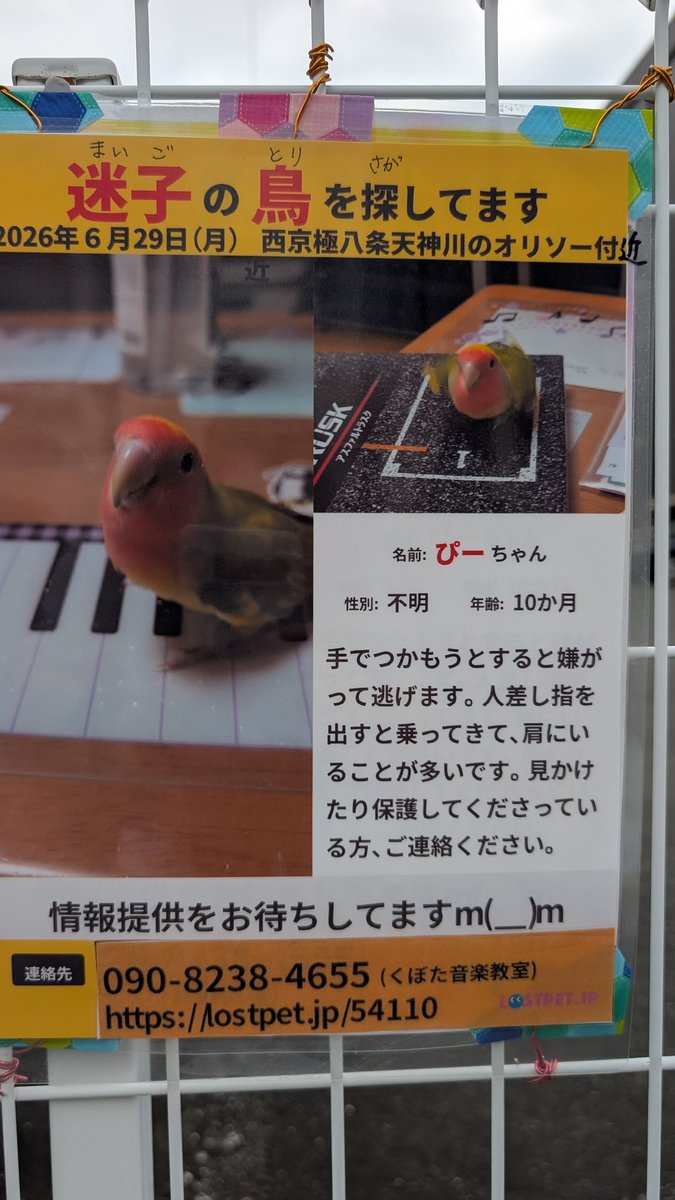 まいご とり さが
迷子の鳥を探してます
2026年6月29日(月) 西京極八条天神川のオリソー付近
近
RUSK
アスファルトラスク
1
名前: ぴーちゃん
性別: 不明 年齢: 10か月
手でつかもうとすると嫌が
って逃げます。人差し指を
出すと乗ってきて、肩にい
ることが多いです。見かけ
たり保護してくださってい
る方、ご連絡ください。
情報提供をお待ちしてますm(__)m
連絡先
090-8238-4655 (くぼた音楽教室)
https://lostpet.jp/54110
LOSTPET.JP